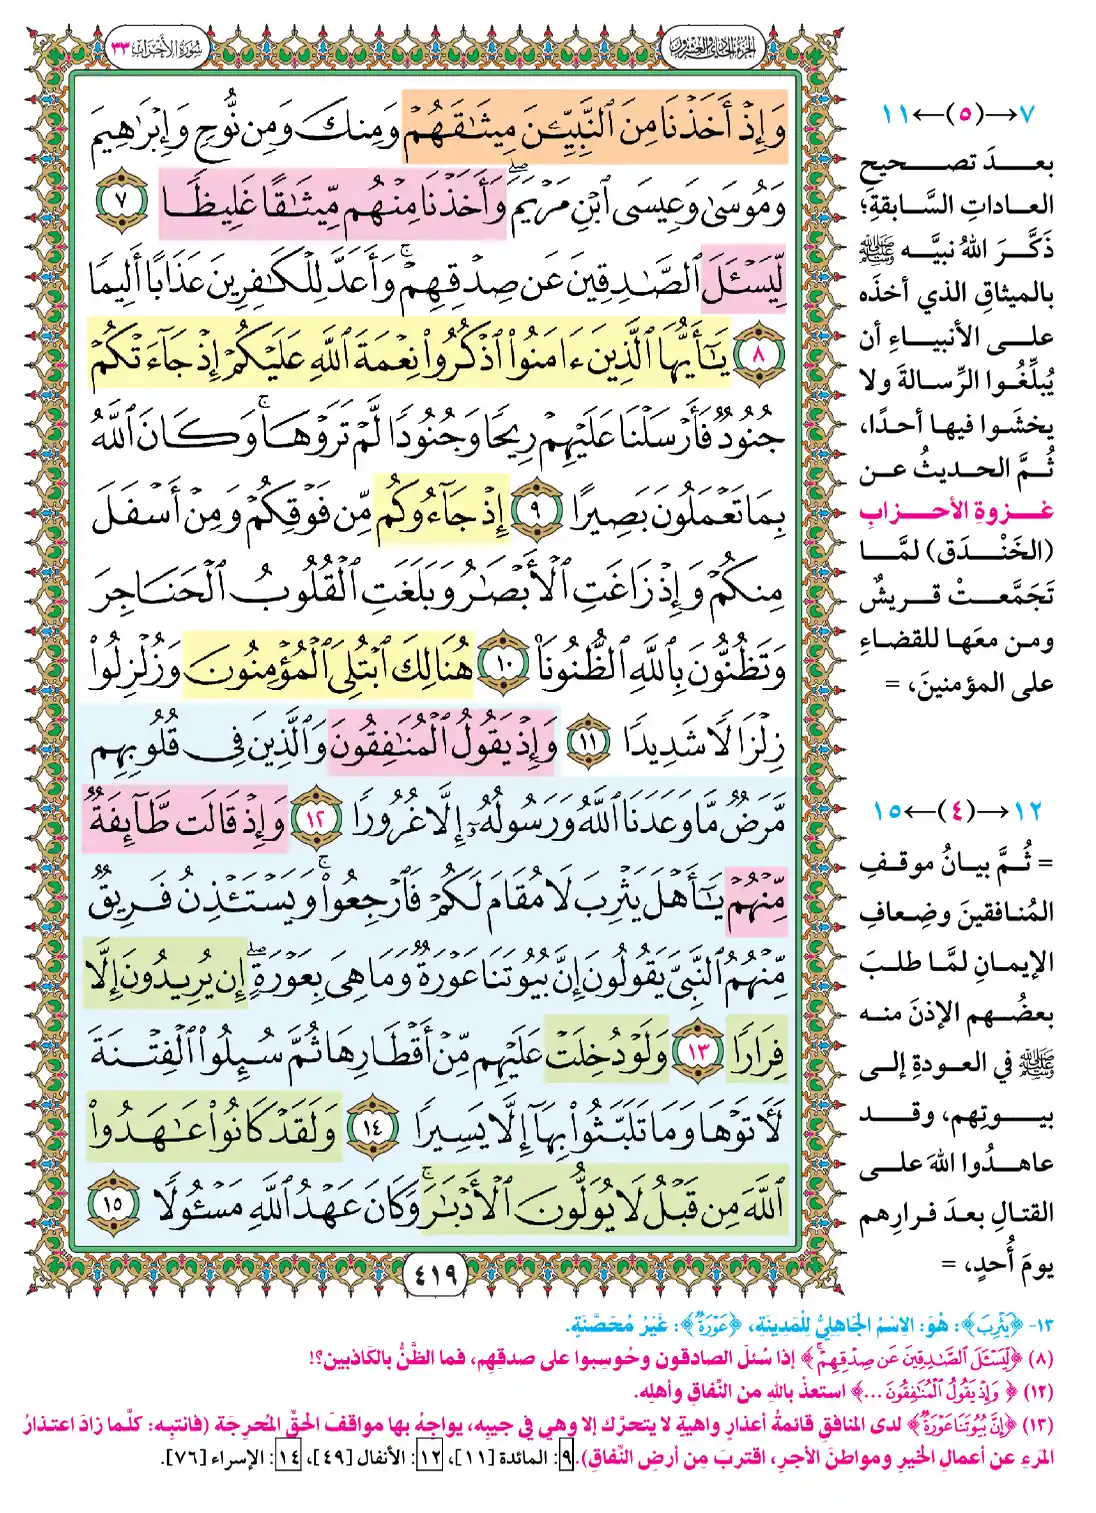 الجزء الحادي والعشرون
سورة الأحزاب ٣٣
وَإِذْ أَخَذْنَا مِنَ ٱلنَّبِيِّـۧنَ مِيثَٰقَهُمْ وَمِنكَ وَمِن نُّوحٍ وَإِبْرَٰهِيمَ
وَمُوسَىٰ وَعِيسَى ٱبْنِ مَرْيَمَ ۖ وَأَخَذْنَا مِنْهُم مِّيثَٰقًا غَلِيظًا ٧
لِّيَسْـَٔلَ ٱلصَّٰدِقِينَ عَن صِدْقِهِمْ ۚ وَأَعَدَّ لِلْكَٰفِرِينَ عَذَابًا أَلِيمًا
٨ يَٰٓأَيُّهَا ٱلَّذِينَ ءَامَنُوا۟ ٱذْكُرُوا۟ نِعْمَةَ ٱللَّهِ عَلَيْكُمْ إِذْ جَآءَتْكُمْ
جُنُودٌ فَأَرْسَلْنَا عَلَيْهِمْ رِيحًا وَجُنُودًا لَّمْ تَرَوْهَا ۚ وَكَانَ ٱللَّهُ
بِمَا تَعْمَلُونَ بَصِيرًا ٩ إِذْ جَآءُوكُم مِّن فَوْقِكُمْ وَمِنْ أَسْفَلَ
مِنكُمْ وَإِذْ زَاغَتِ ٱلْأَبْصَٰرُ وَبَلَغَتِ ٱلْقُلُوبُ ٱلْحَنَاجِرَ
وَتَظُنُّونَ بِٱللَّهِ ٱلظُّنُونَا۠ ١٠ هُنَالِكَ ٱبْتُلِىَ ٱلْمُؤْمِنُونَ وَزُلْزِلُوا۟
زِلْزَالًا شَدِيدًا ١١ وَإِذْ يَقُولُ ٱلْمُنَٰفِقُونَ وَٱلَّذِينَ فِى قُلُوبِهِم
مَّرَضٌ مَّا وَعَدَنَا ٱللَّهُ وَرَسُولُهُۥٓ إِلَّا غُرُورًا ١٢ وَإِذْ قَالَت طَّآئِفَةٌ
مِّنْهُمْ يَٰٓأَهْلَ يَثْرِبَ لَا مُقَامَ لَكُمْ فَٱرْجِعُوا۟ ۚ وَيَسْتَـْٔذِنُ فَرِيقٌ
مِّنْهُمُ ٱلنَّبِىَّ يَقُولُونَ إِنَّ بُيُوتَنَا عَوْرَةٌ وَمَا هِىَ بِعَوْرَةٍ ۖ إِن يُرِيدُونَ إِلَّا
فِرَارًا ١٣ وَلَوْ دُخِلَتْ عَلَيْهِم مِّنْ أَقْطَارِهَا ثُمَّ سُئِلُوا۟ ٱلْفِتْنَةَ
لَـَٔاتَوْهَا وَمَا تَلَبَّثُوا۟ بِهَآ إِلَّا يَسِيرًا ١٤ وَلَقَدْ كَانُوا۟ عَٰهَدُوا۟
ٱللَّهَ مِن قَبْلُ لَا يُوَلُّونَ ٱلْأَدْبَٰرَ ۚ وَكَانَ عَهْدُ ٱللَّهِ مَسْـُٔولًا ١٥
٤١٩
٧→(٥)←١١
بعدَ تصحيحِ
العاداتِ السَّابقةِ؛
ذَكَّرَ اللهُ نبيَّه ﷺ
بالميثاقِ الذي أخذَه
على الأنبياءِ أن
يُبلِّغُوا الرِّسالةَ ولا
يخشَوا فيها أحدًا،
ثُمَّ الحديثُ عن
غزوةِ الأحزابِ
(الخَنْدَق) لمَّا
تَجَمَّعتْ قريشٌ
ومن معَها للقضاءِ
على المؤمنينَ، =
١٢→(٤)←١٥
= ثُمَّ بيانُ موقفِ
المُنافقينَ وضِعافِ
الإيمانِ لمَّا طلبَ
بعضُهم الإذنَ منه
ﷺ في العودةِ إلى
بيوتِهم، وقد
عاهدُوا اللهَ على
القتالِ بعدَ فرارِهم
يومَ أُحدٍ، =
١٣- ﴿يَثْرِبَ﴾: هُوَ: الِاسْمُ الجَاهِلِيُّ لِلْمَدِينَةِ، ﴿عَوْرَةٌ﴾: غَيْرُ مُحَصَّنَةٍ.
(٨) ﴿لِّيَسْـَٔلَ ٱلصَّٰدِقِينَ عَن صِدْقِهِمْ ۚ﴾ إذا سُئلَ الصادقون وحُوسِبوا على صدقِهم، فما الظَّنُّ بالكاذبين؟!
(١٢) ﴿وَإِذْ يَقُولُ ٱلْمُنَٰفِقُونَ ...﴾ استعذْ باللهِ من النِّفاقِ وأهلِه.
(١٣) ﴿إِنَّ بُيُوتَنَا عَوْرَةٌ﴾ لدى المنافقِ قائمةُ أعذارٍ واهيةٍ لا يتحرَّك إلا وهي في جيبِه، يواجهُ بها مواقفَ الحقِّ المُحرِجَة (فانتبِه: كلَّما زادَ اعتذارُ
المَرءِ عن أعمالِ الخيرِ ومواطنَ الأجرِ، اقتربَ مِن أرضِ النِّفاقِ). ٩: المائدة [١١]، ١٢: الأنفال [٤٩]، ١٤: الإسراء [٧٦].